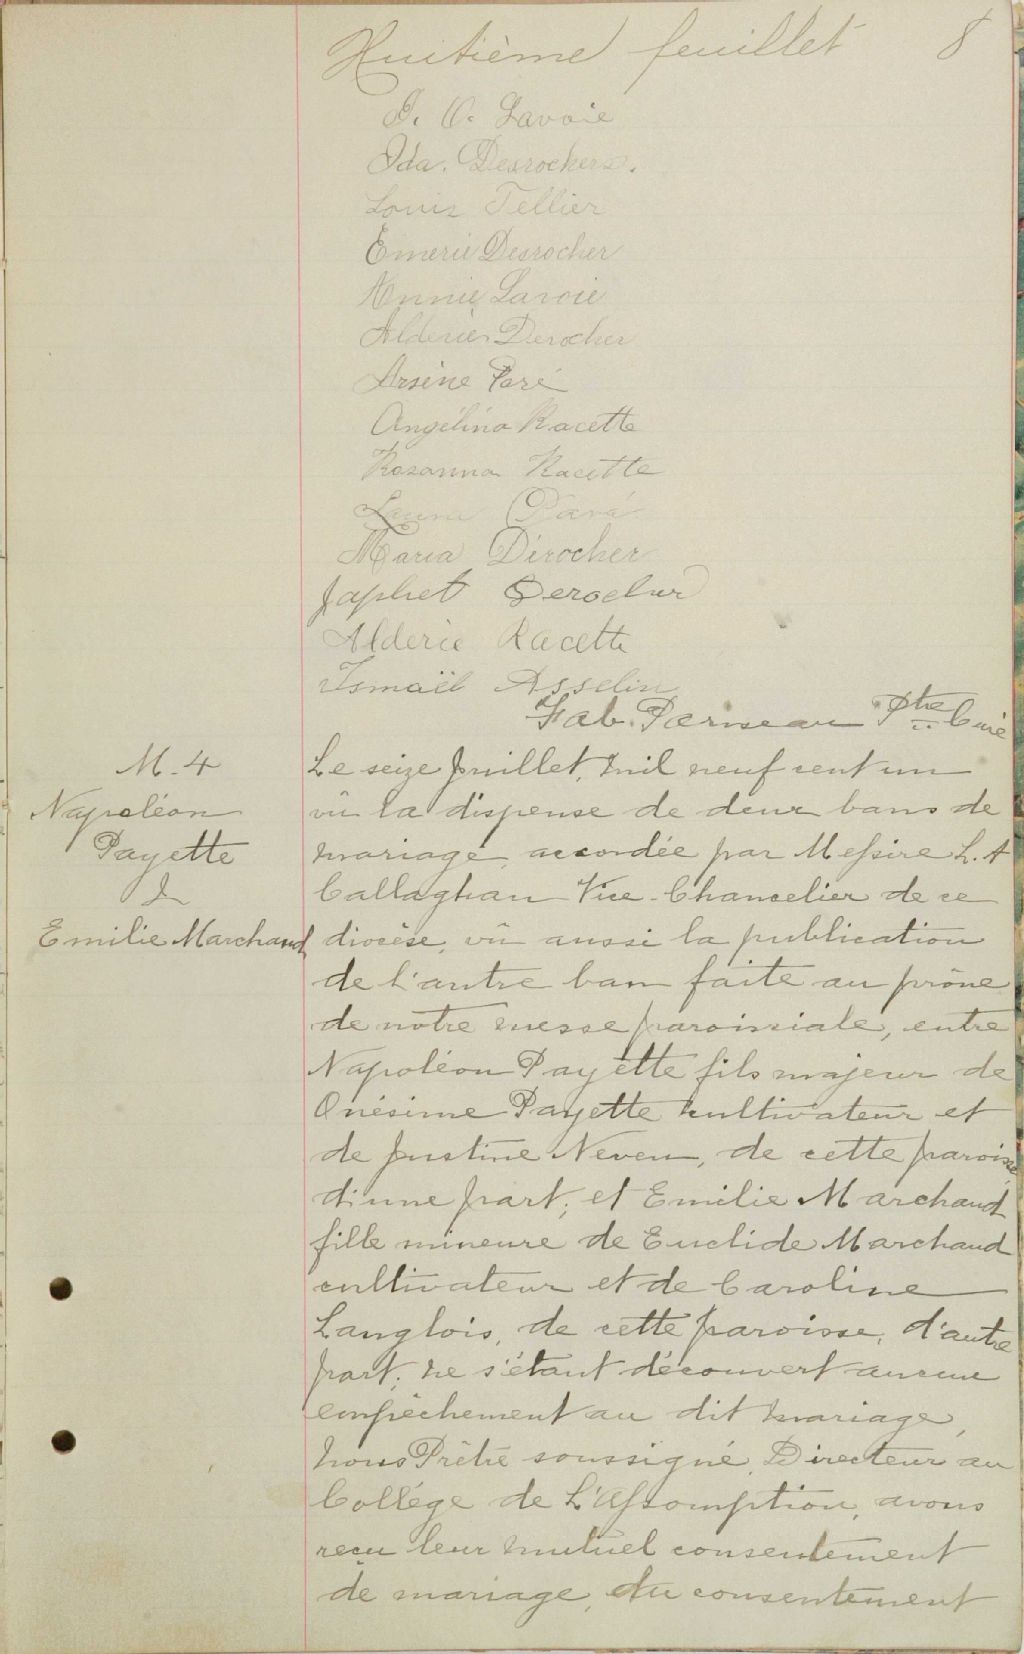 Huitième feuillet 8
J. O. Lavoie
Ida. Desrochers.
Louis Tellier
Emerie Desrocher
Annie Lavoie
Alderie Derocher
Arsène Paré
Angélina Racette
Rosanna Racette
Laura Paré
Maria Dérocher
Japhet Derocher
Alderie Racette
Ismaël Asselin
Fab. Parneau Ptre Curé
M. 4
Napoléon
Payette
&
Emilie Marchand
Le seize Juillet, mil neuf cent un
vû la dispense de deux bans de
mariage, accordée par Messire L. A
Callaghan Vice-Chancelier de ce
diocèse, vû aussi la publication
de l'autre ban faite au prône
de notre messe paroissiale, entre
Napoléon Payette fils majeur de
Onésime Payette cultivateur et
de Justine Neveu, de cette paroisse,
d'une part; et Emilie Marchand
fille mineure de Euclide Marchand
cultivateur et de Caroline
Langlois, de cette paroisse, d'autre
part; ne s'étant découvert aucun
empêchement au dit mariage,
nous Prêtre soussigné, Directeur au
Collége de L'Assomption, avons
reçu leur mutuel consentement
de mariage, du consentement